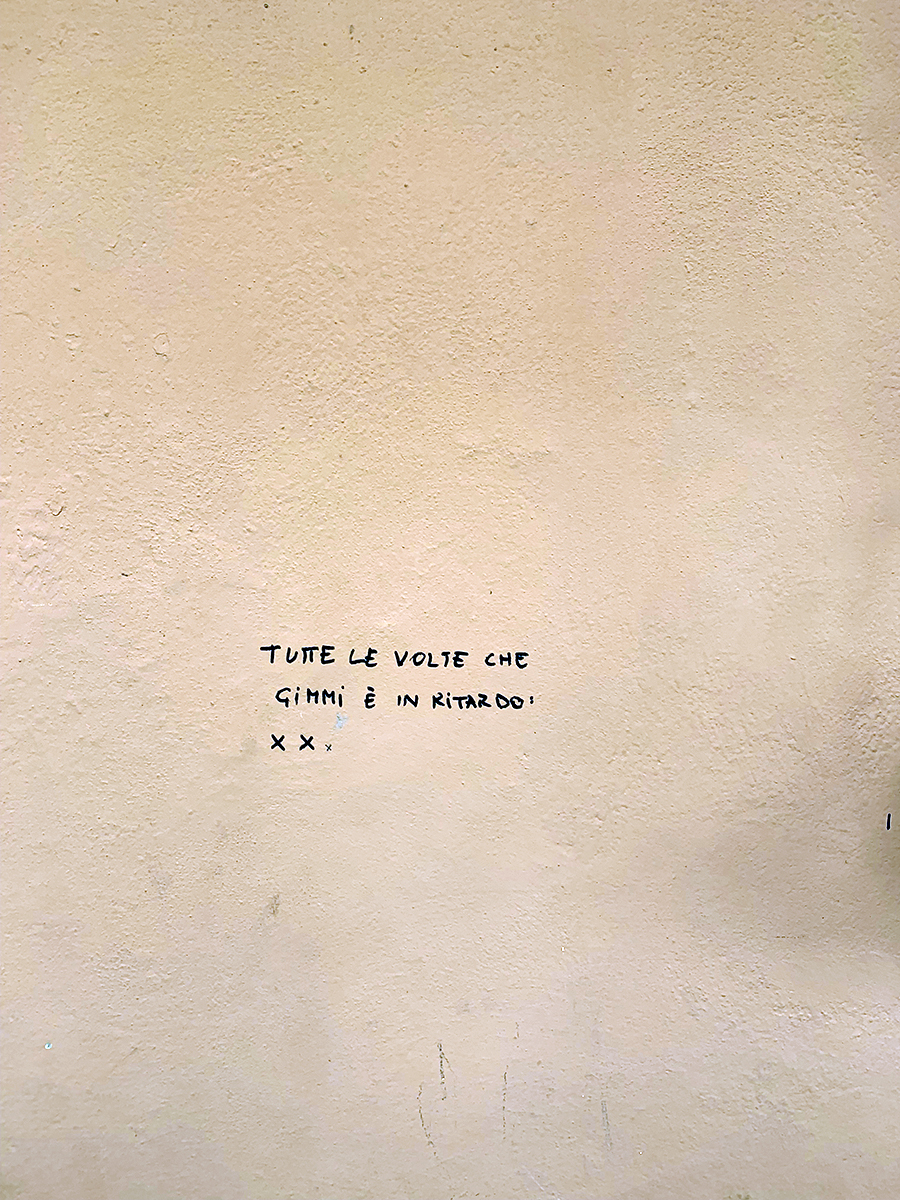 TUTTE LE VOLTE CHE
GiMMi È IN RiTARDO:
X X x